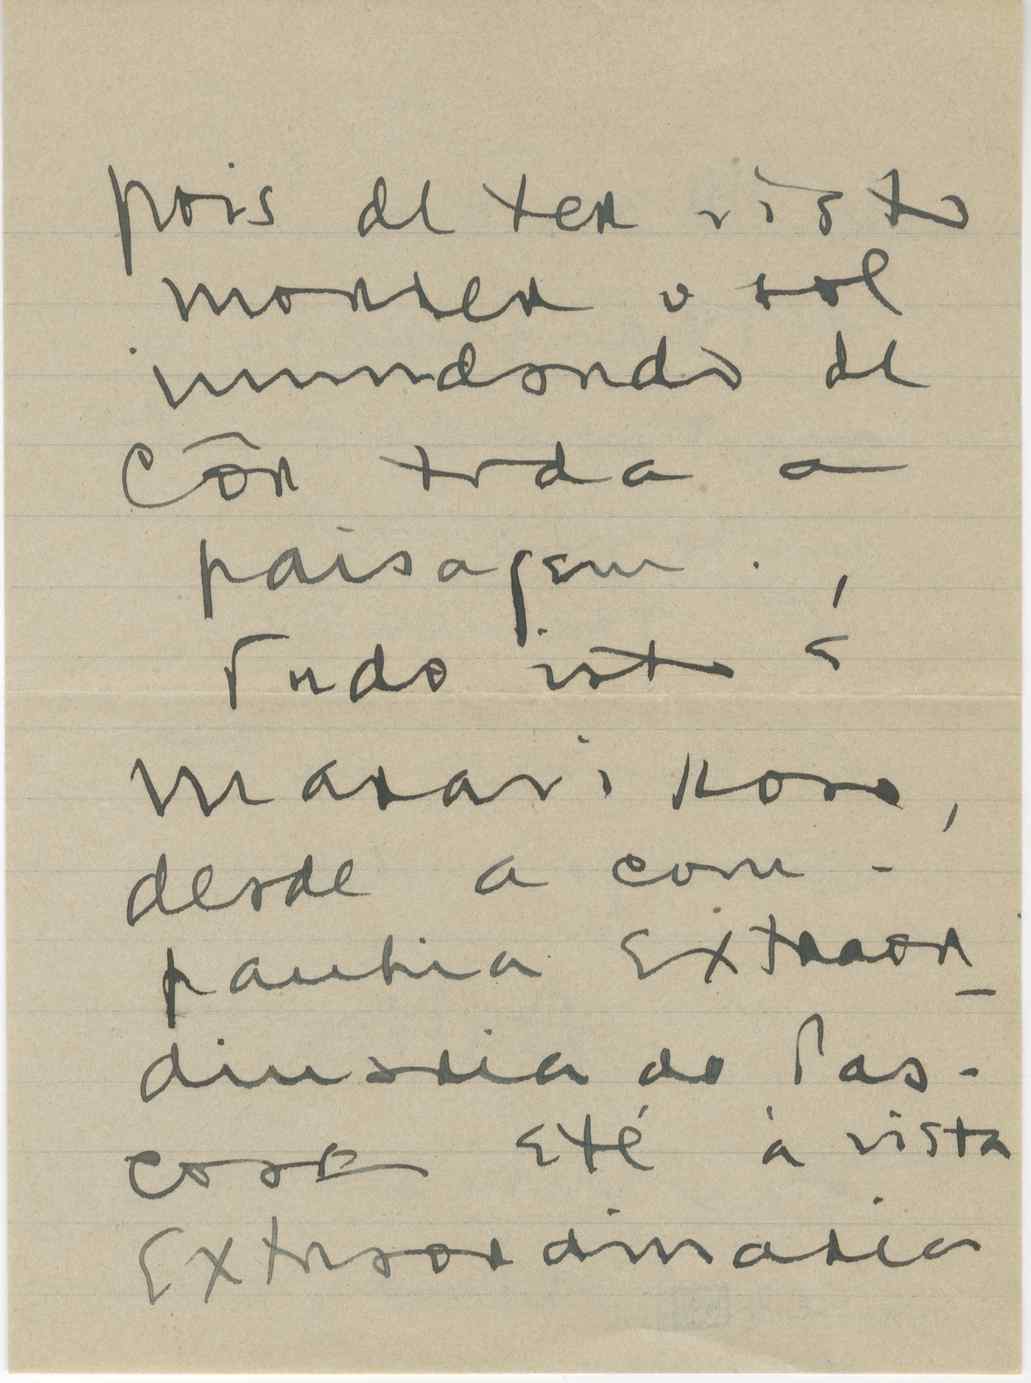 pois de ter visto
morrer o sol
inundando de
côr toda a
paisagem.
Tudo isto é
maravilhoso,
desde a com-
panhia extraor-
dinaria do Pas-
coal até à vista
extraordinaria